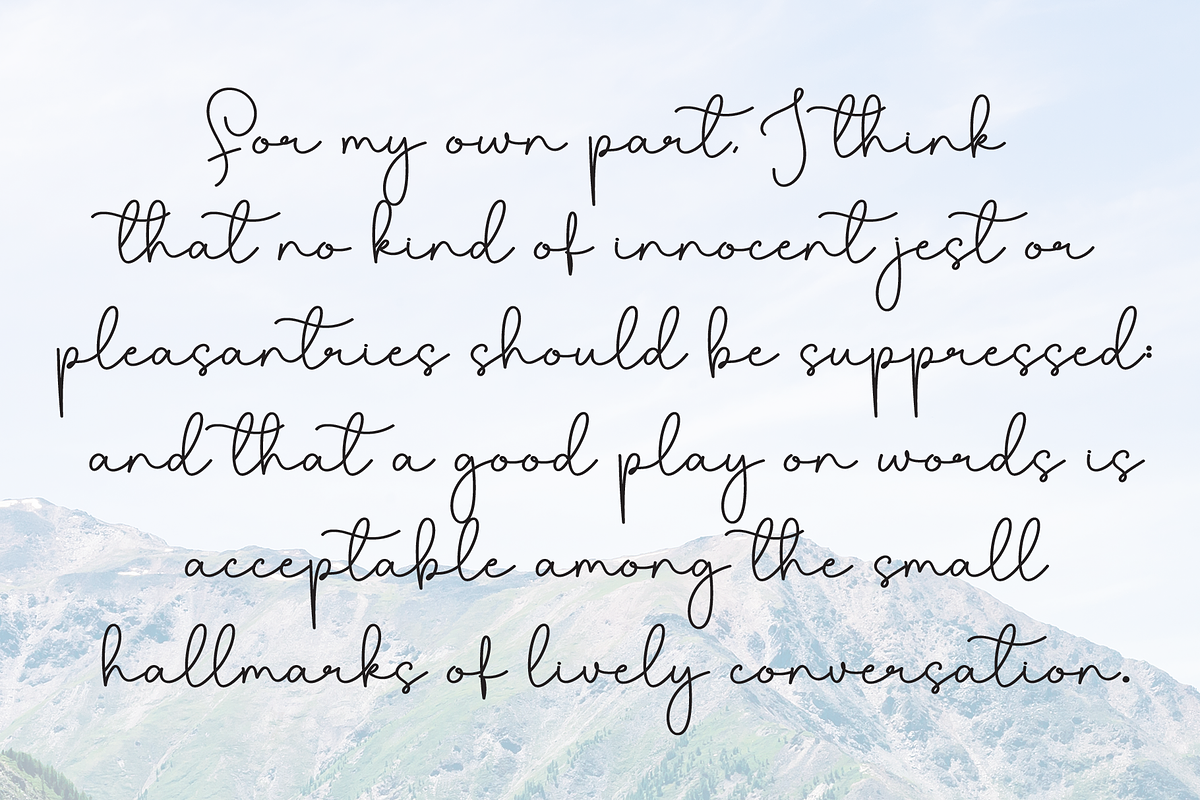 For my own part, I think
that no kind of innocent jest or
pleasantries should be suppressed:
and that a good play on words is
acceptable among the small
hallmarks of lively conversation.